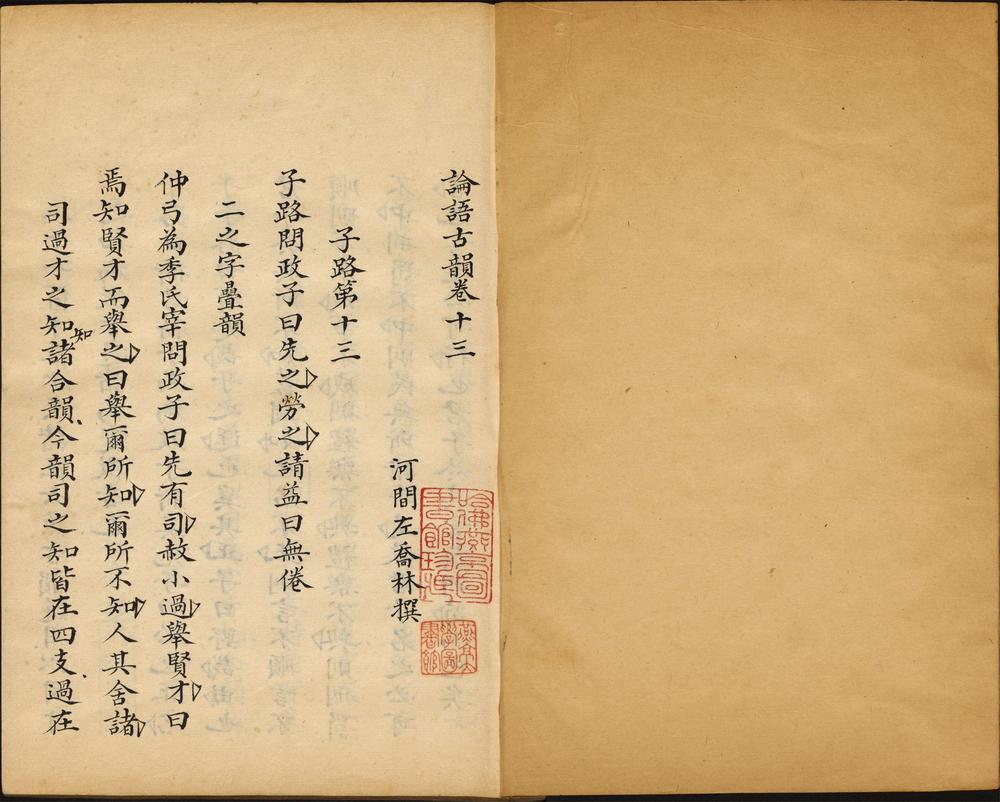 論語古韻卷十三
河間左喬林撰
子路第十三
子路問政子曰先之勞之請益曰無倦
二之字疊韻
仲弓為季氏宰問政子曰先有司赦小過舉賢才曰
焉知賢才而舉之曰舉爾所知爾所不知人其舍諸
司過才之知知諸合韻今韻司之知皆在四支過在
哈佛燕京圖書館珍藏
燕京大學圖書館